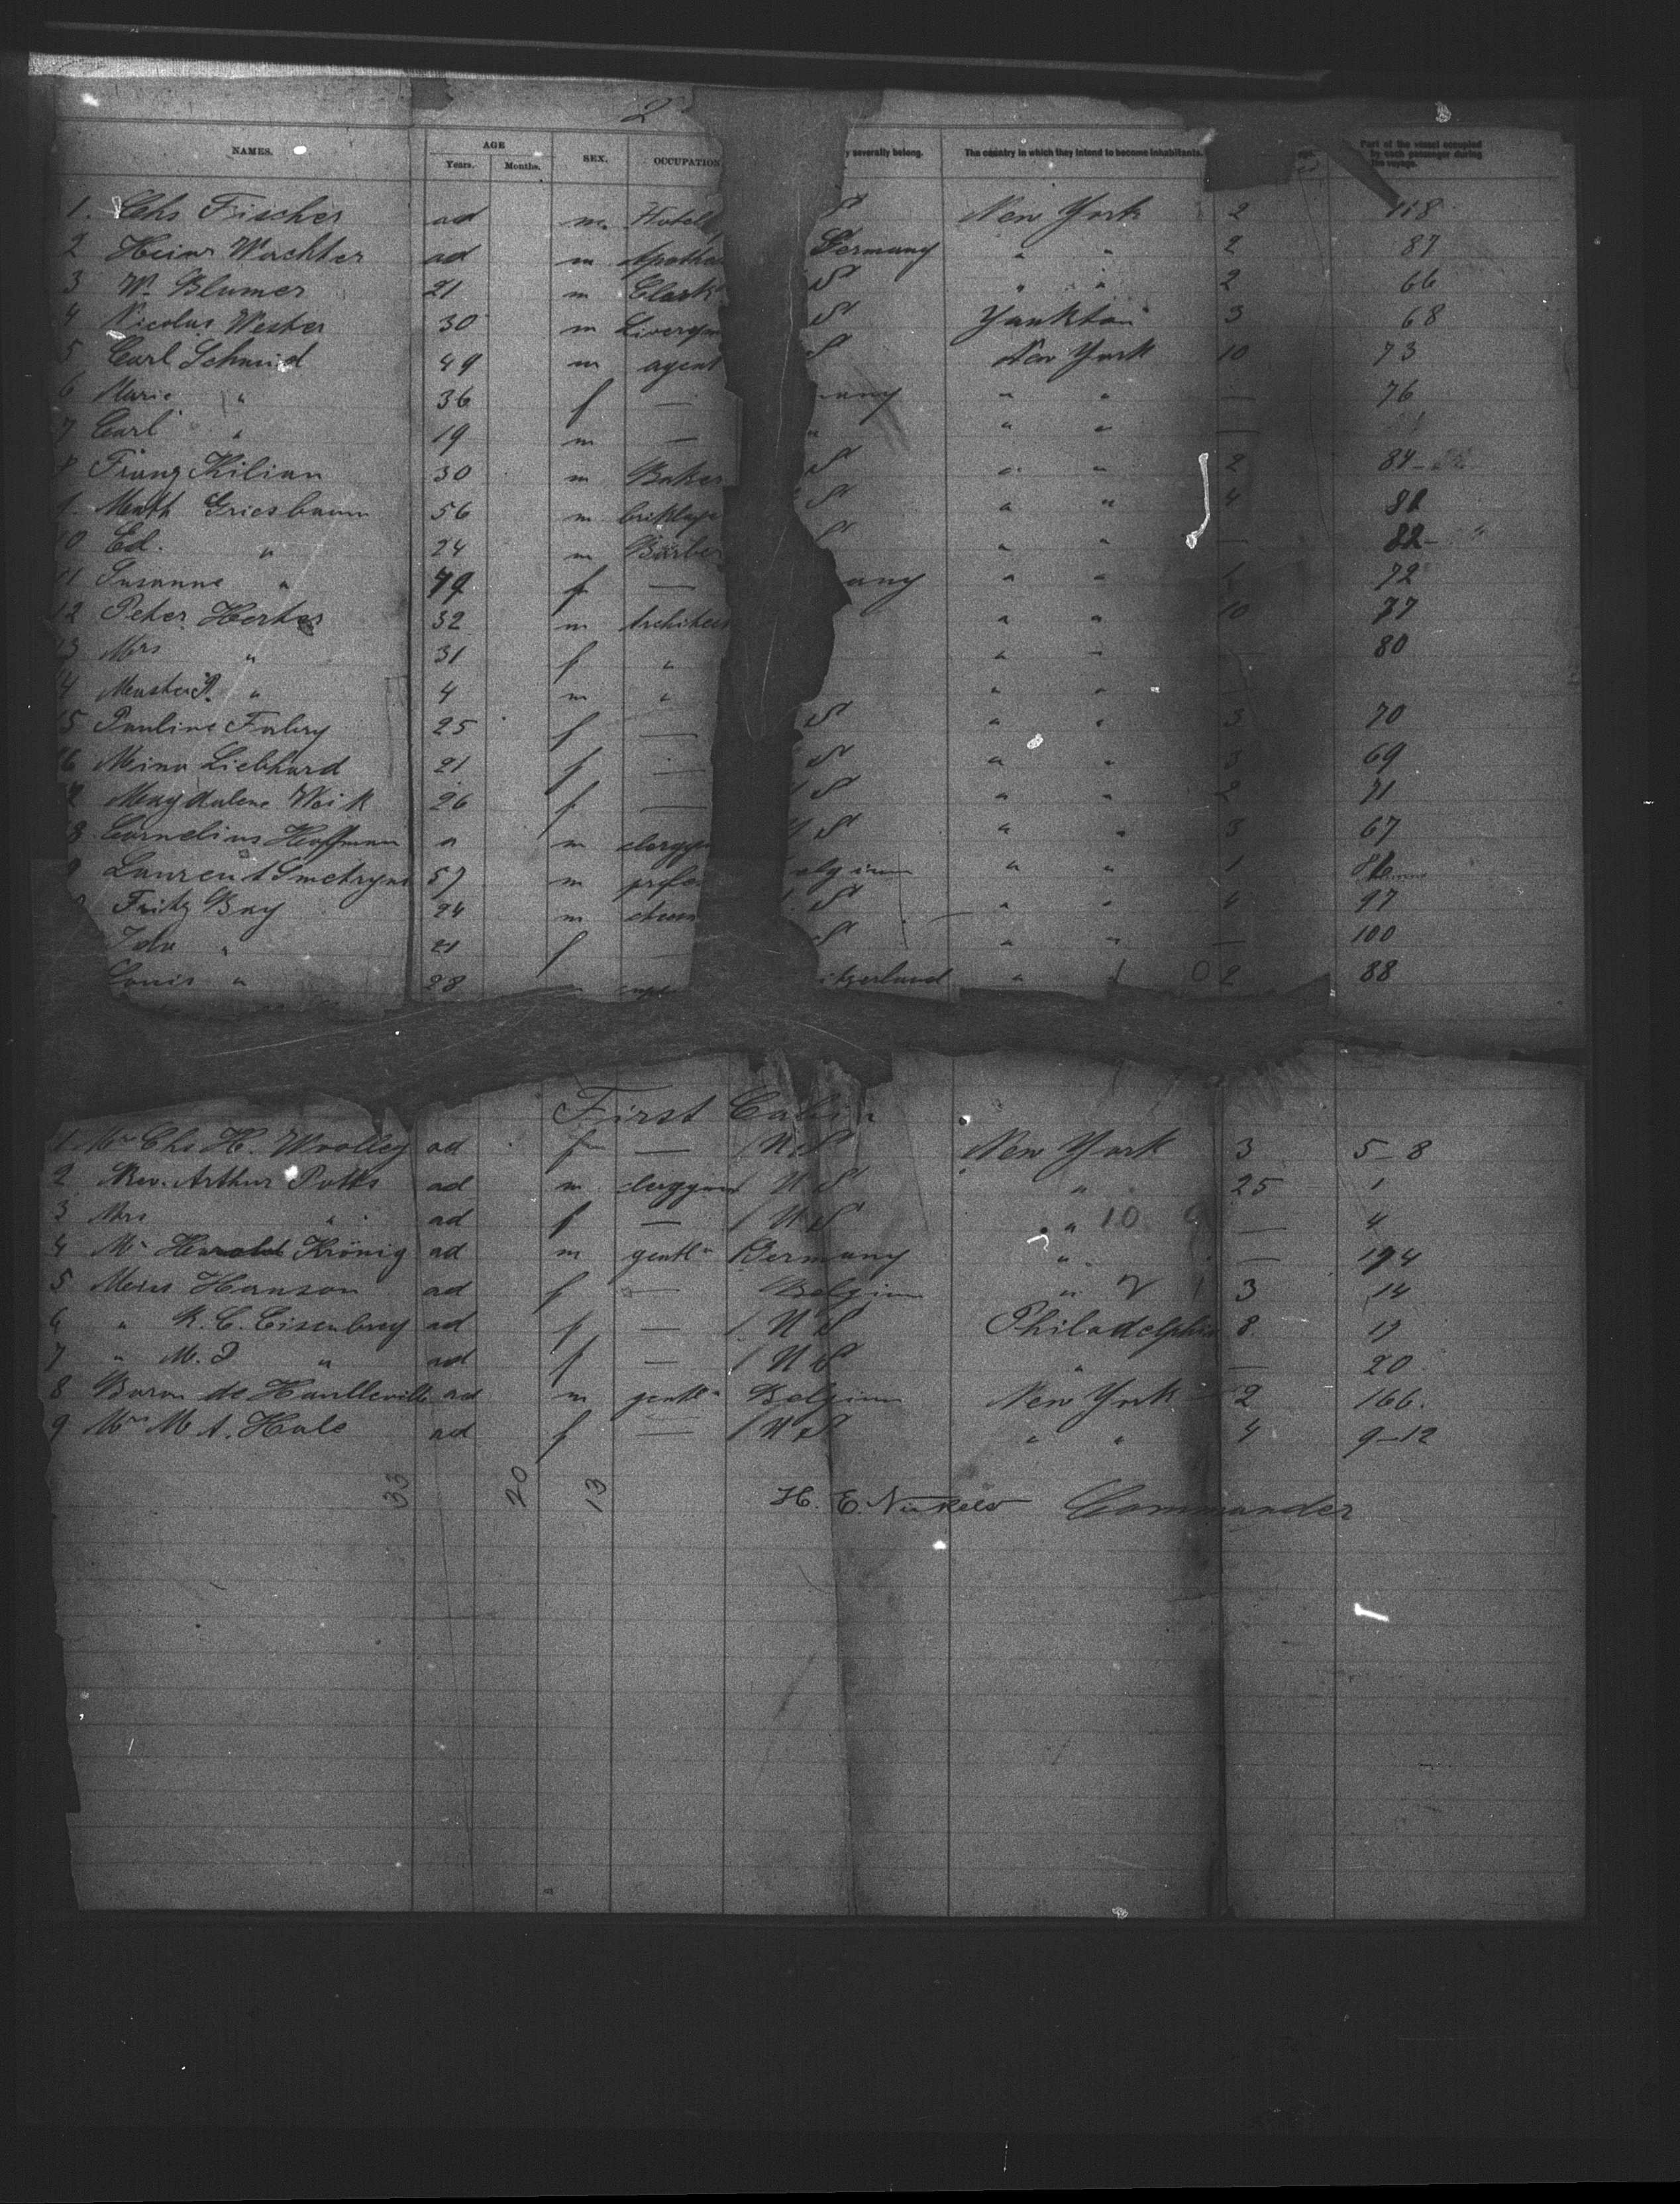 2
NAMES. AGE Years. Months. SEX. OCCUPATION y severally belong. The country in which they intend to become inhabitants. Part of the vessel occupied by each passenger during the voyage.
1. Chs Fischer ad m. Hotel S New York 2 118
2 Heinr Wachter ad m Apothe Germany " " 2 87
3 Wm Blumer 21 m Clerk S " " 2 66
4 Nicolas Wester 30 m Liverym S Yankton 3 68
5 Carl Schmid 49 m agent S New York 10 73
6 Marie " 36 f — any " " — 76
7 Carl " 19 m — " " " —
8 Franz Kilian 30 m Baker S " " 2 84
9. Math Griesbaum 56 m S " " 4 81
10 Ed. " 24 m Barber S " " — 82
11 Susanne " 49 f — any " " 1 72
12 Peter Hertes 32 m Architect " " 10 77
13 Mrs " 31 f " " " 80
14 Master P. " 4 m " " "
15 Pauline Fabry 25 f — S " " 3 70
16 Mina Liebhard 21 f — S " " 3 69
17 Magdalene Weik 26 f — S " " 2 71
18 Cornelius Hoffman a m clergym S " " 3 67
9 Laurent Smetryns 57 m profes elgium " " 1 86
Fritz Bay 24 m S " " 4 97
Ida " 21 f S " " — 100
Louis " 28 itzerland " 2 88
First Cabin
1. Mrs Chs H. Woolley ad f — U S New York 3 5–8
2 Rev. Arthur Potts ad m clergyman U S " 25 1
3 Mrs " ad f — U S " 10 — 4
4 Mr Harold Krönig ad m gentln Germany " — 194
5 Miss Hanson ad f — Belgium " 3 14
6 " R. C. Eisenbrey ad f — U S Philadelphia 8 17
7 " M. J " ad f — U S " — 20
8 Baron de Haulleville ad m gentln Belgium New York 2 166.
9 Mrs M A. Hale ad f — U S " " 4 9–12
33 20 13
H. E. Nickels Commander